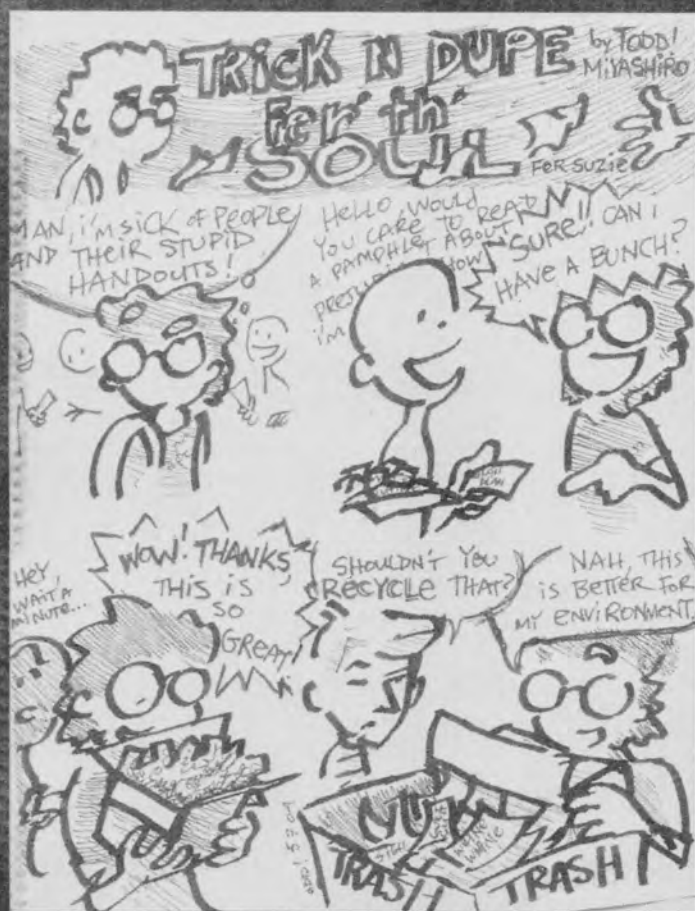 TRICK N DUPE
For' th'
SOUL
by TODD!
MIYASHIRO
FOR SUZIE
MAN, i'M SICK OF PEOPLE
AND THEIR STUPID
HANDOUTS!
HELLO WOULD
YOU CARE TO READ
A PAMPHLET ABOUT
HOW
i'M
SURE! CAN I
HAVE A BUNCH?
HEY,
WAIT A
MINUTE...
WOW! THANKS,
THIS IS
SO
GREAT!
SHOULDN'T YOU
RECYCLE THAT?
NAH, THIS
IS BETTER FOR
MY ENVIRONMENT.
TRASH
TRASH